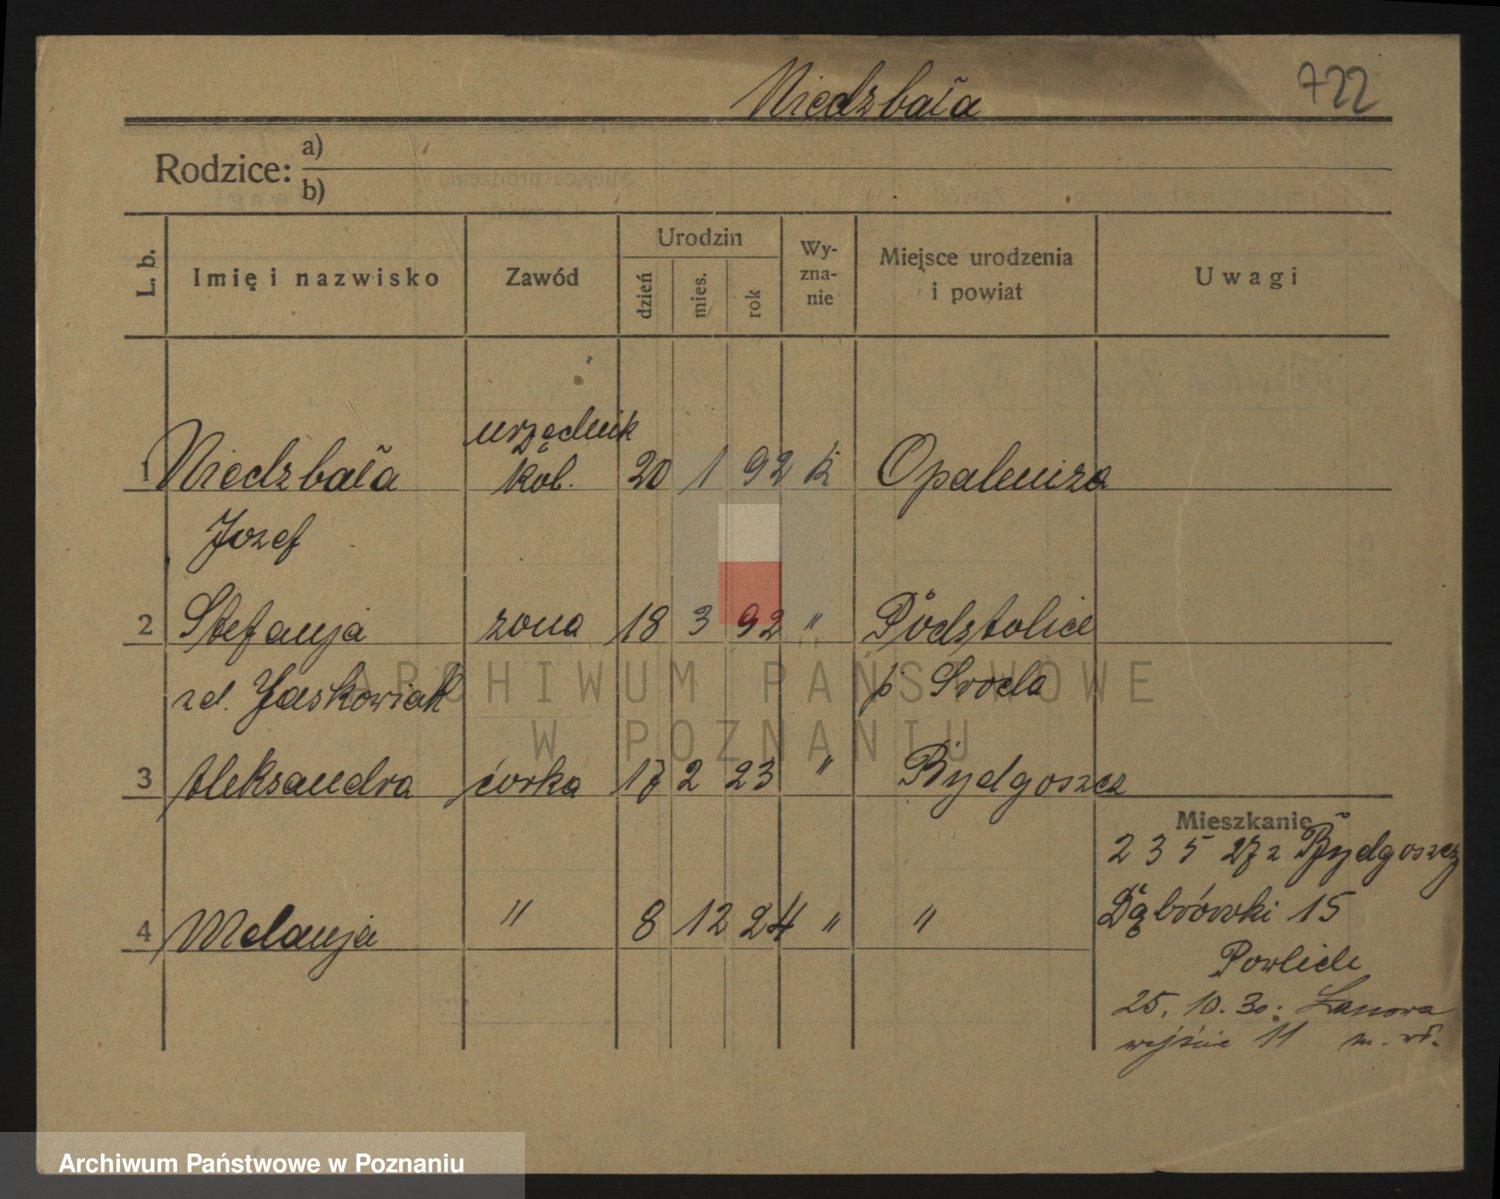 Niedzbała
722
Rodzice: a)
b)
L. b.
Imię i nazwisko
Zawód
Urodzin
dzień
mies.
rok
Wy-
zna-
nie
Miejsce urodzenia
i powiat
Uwagi
1 Niedzbała urzędnik kol. 20 1 92 k Opalenica
Józef
2 Stefanja żona 18 3 92 " Podstolice
zd. Jaskowiak p Środa
3 Aleksandra córka 17 2 23 " Bydgoszcz
4 Melanja " 8 12 24 " "
Mieszkanie
2 3 5 27 z Bydgoszcz
Dąbrówki 15
25. 10. 30. Łanowa
wejście 11 m. wł.
ARCHIWUM PAŃSTWOWE
W POZNANIU
Archiwum Państwowe w Poznaniu